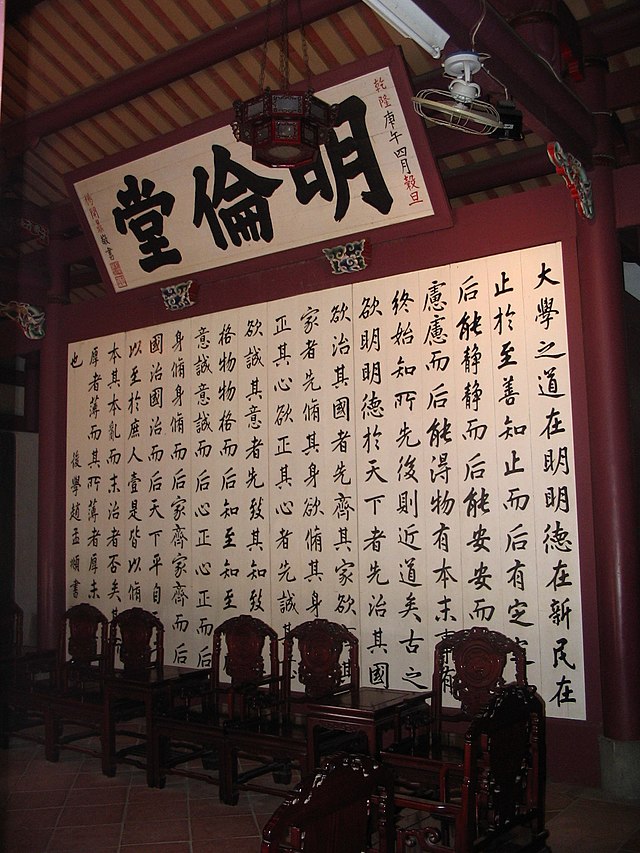 乾隆庚午四月穀旦
明倫堂
楊開鼎敬書
大學之道在明明德在新民在
止於至善知止而后有定定
后能靜靜而后能安安而
慮慮而后能得物有本末事有
終始知所先後則近道矣古之
欲明明德於天下者先治其國
欲治其國者先齊其家欲其
家者先脩其身欲脩其身
正其心欲正其心者先誠其
欲誠其意者先致其知致
格物物格而后知至知至
意誠意誠而后心正心正而后
身脩身脩而后家齊家齊而后
國治國治而后天下平自
以至於庶人壹是皆以脩
本其本亂而末治者否矣其
厚者薄而其所薄者厚未
也 後學趙孟頫書